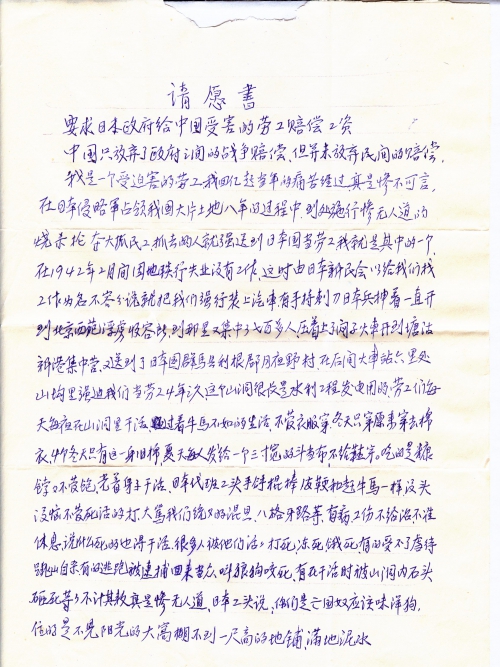 请愿书
要求日本政府给中国受害的劳工赔偿工资
中国只放弃了政府之间的战争赔偿，但并未放弃民间的赔偿，
我是一个受迫害的劳工我回忆起当年的痛苦经过真是惨不可言，
在日本侵略军占领我国大片土地八年的过程中，到处施行惨无人道的
烧杀抢夺大抓民工，抓去的人就强送到日本国当劳工我就是其中的一个，
在1942年2月间因地秩行失业没有工作，这时由日本新民会以给我们找
工作为名不容分说就把我们强行装上汽车有手持刺刀日本兵押着一直开
到北京西苑俘虏收容所，到那里又集中了七百多人，压着上了闷子火车开到塘沽
新港集中营，又送到了日本国群马县利根郡月夜野村，在后闲火车站六里处
山沟里强迫我们当劳工4年久这个山洞很长是水利工程发电用的，劳工们每
天每夜在山洞里干活，过着牛马不如的生活，不发衣服穿，冬天只穿原来穿去棉
衣，4个冬天只有这一身旧棉，夏天每人发给一个三寸宽的斗当布，不给鞋穿。吃的是糠
饽，不发饱，光着身子干活，日本代班工头手持棍棒皮鞭和赶牛马一样没头
没恼不发死活的打，大骂我们统义的混旦，八格牙路等，有病工伤不给治不准
休息，说什么死的也得干活，很多人被他们活活打死，冻死饿死，有的受不了虐待
跳山自杀有的逃跑被逮捕回来当众叫狼狗咬死，有在干活时被山洞内石头
砸死等等不计其数真是惨无人道，日本工头说，你们是亡国奴应该味洋狗，
住的是不见阳光的大窝棚不到一尺高的地铺，满地泥水